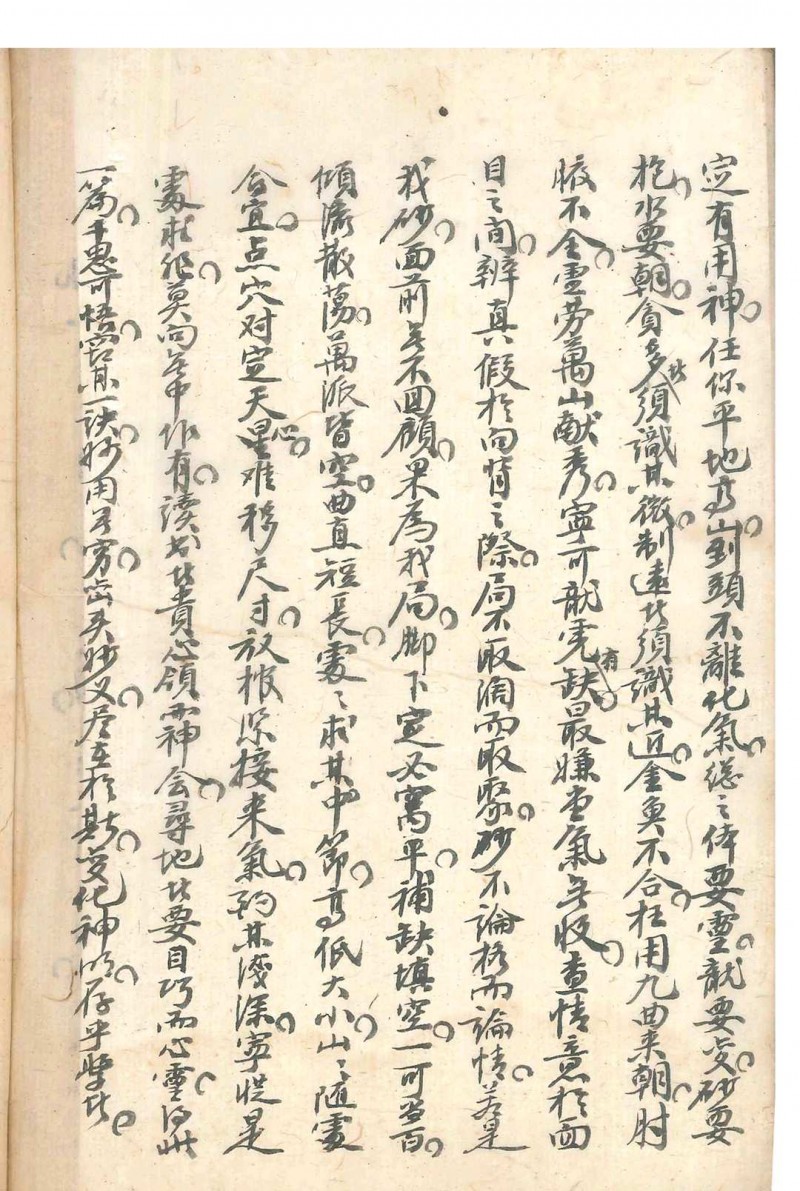 定有用神。任你平地高山。到頭不離化氣。总之体要靈。龍要变。砂要
抱。水要朝。貪多者須識其微。制遠者須識其近。金魚不合。枉用九曲来朝。肘
腋不全。虚劳萬山献秀。寧可龍虎有缺。最嫌堂氣無收。查情意於面
目之间。辨真假於向背之際。局不取濶而取聚。砂不論格而論情。若是
我砂。面前無不回顧。果為我局。脚下定必窝平。補缺填空。一可当百。
傾瀉散蕩。萬派皆空。曲直短長。處〻求其中節。高低大小。山〻随處
合宜。点穴对定天心。星难移尺寸。放棺须接来氣。酌其浅深。寧従是
處求非。莫向無中作有。讀书者贵心領而神会。尋地者要目巧而心靈。得此
一篇。千思可悟。容其一訣。妙用无穷。玄关妙义。尽在於斯。变化神明。存乎學者。